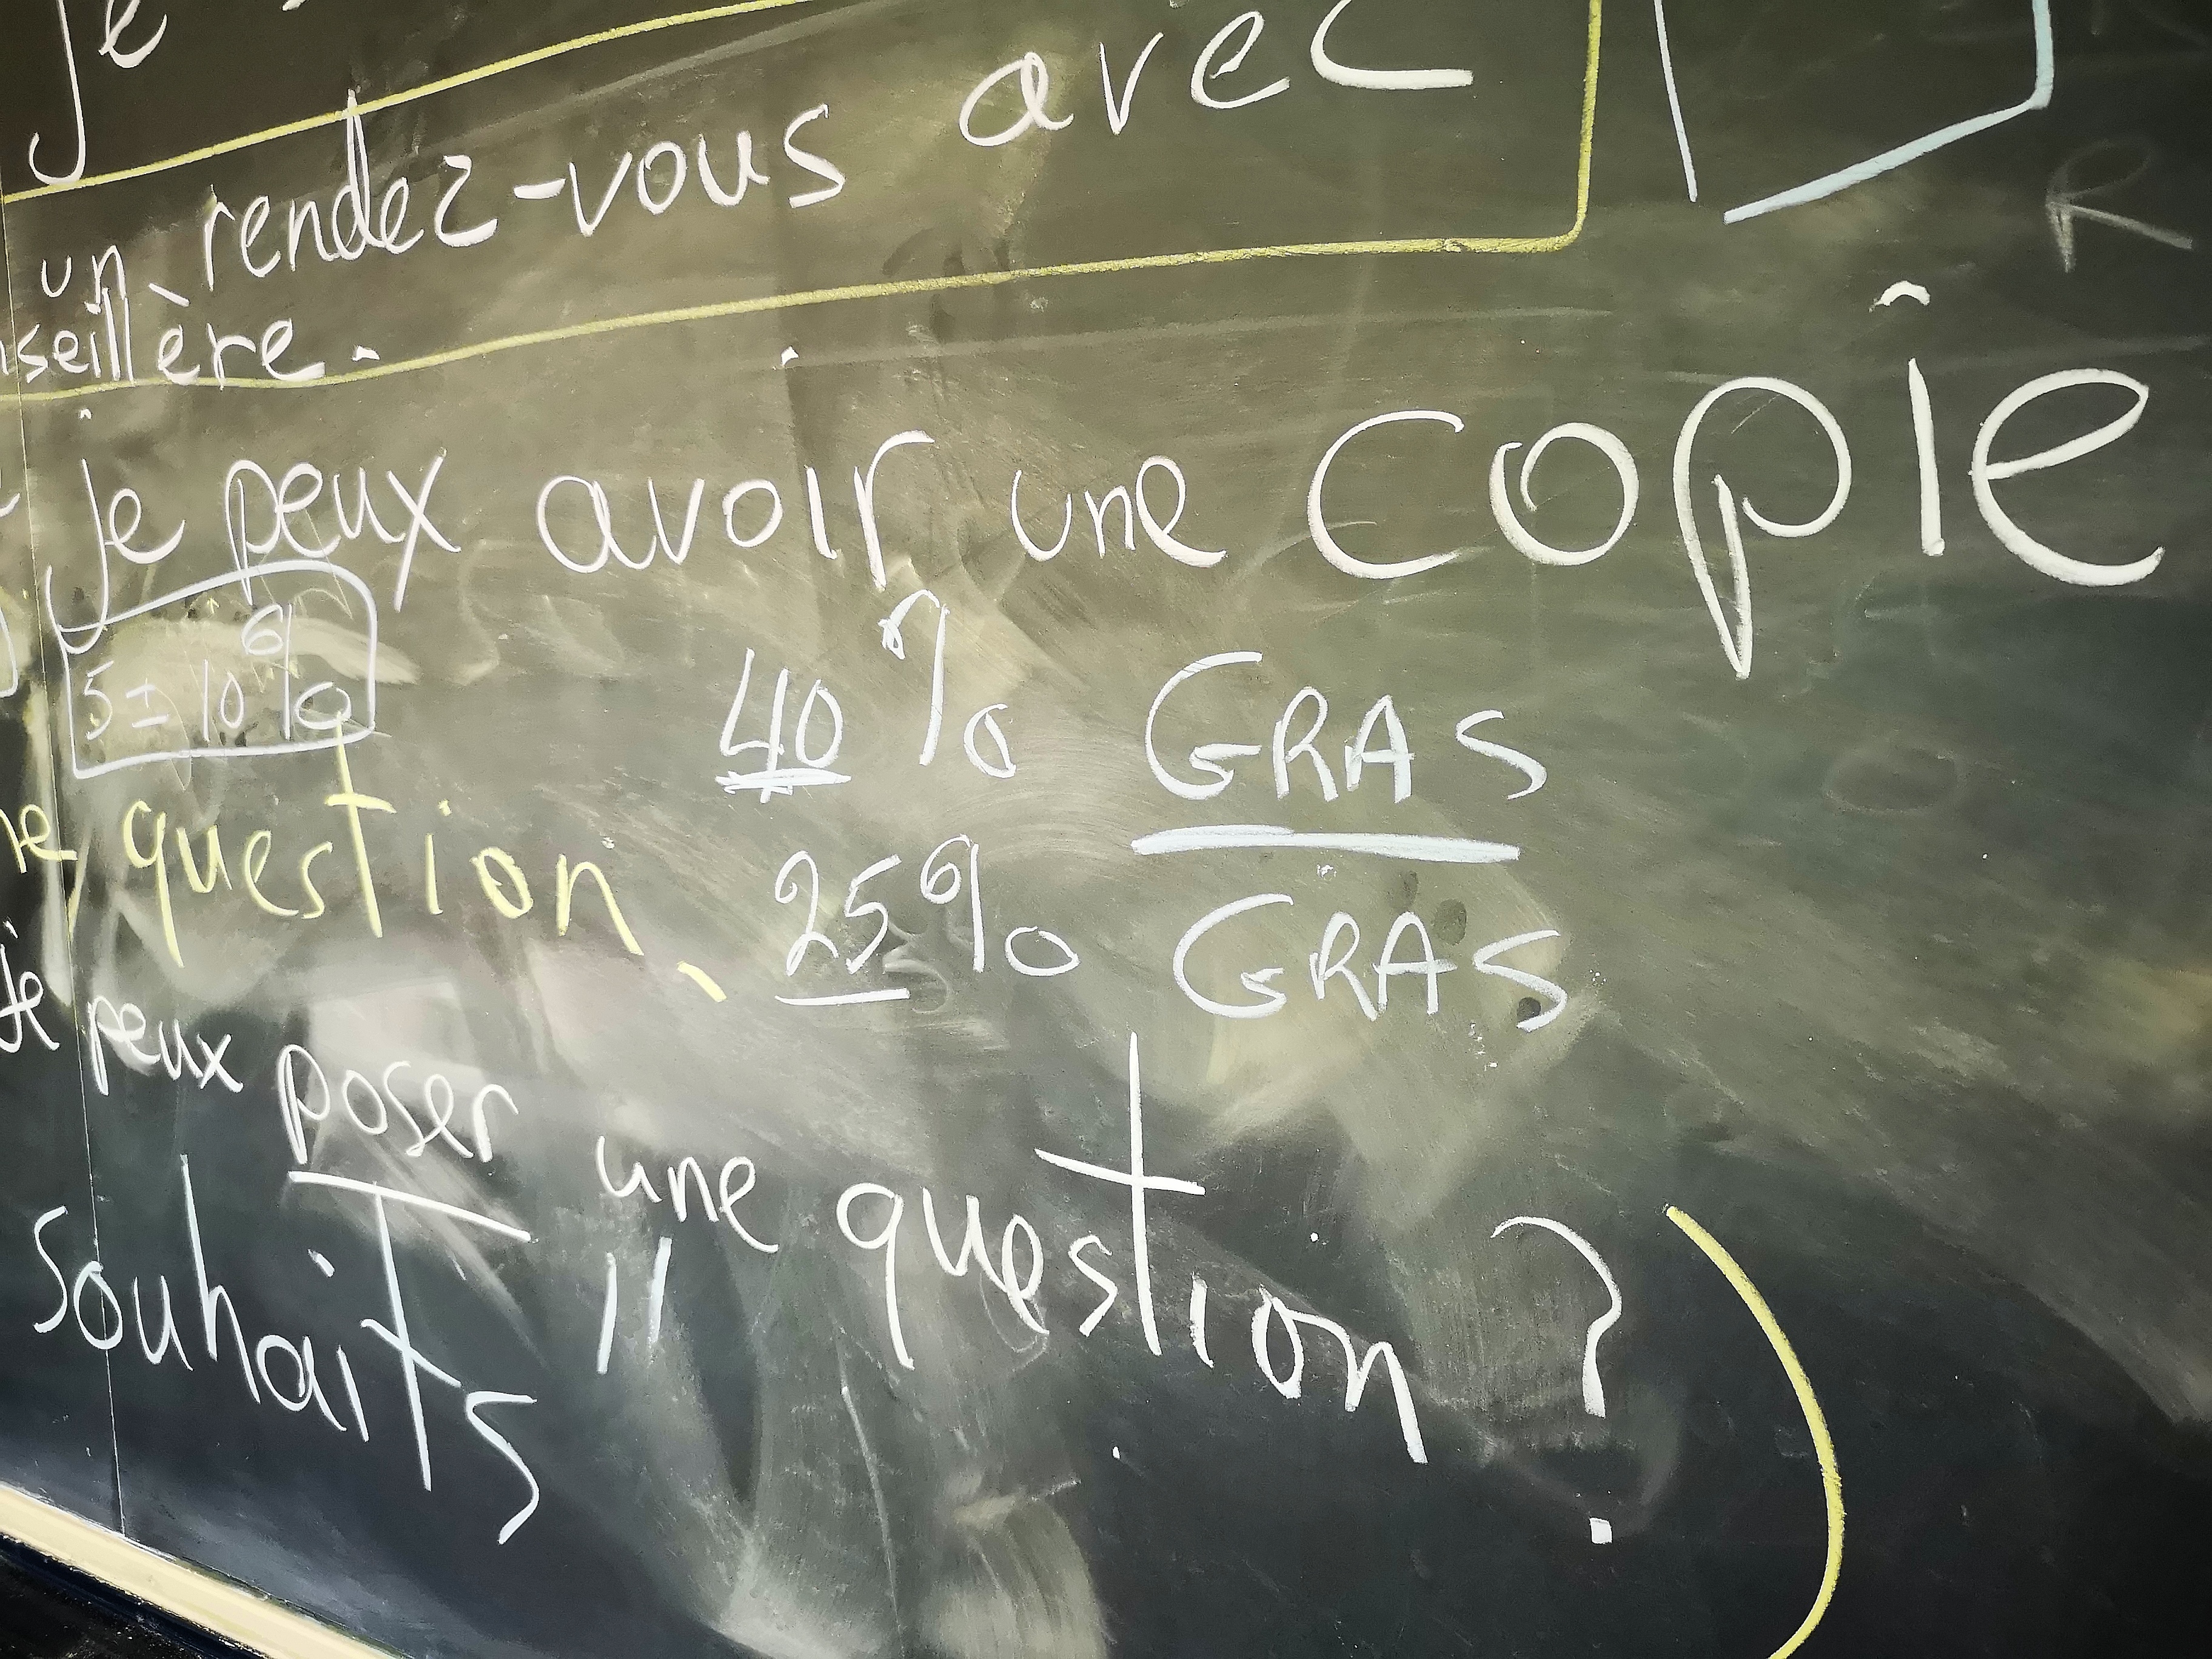 je
un rendez-vous avec
nseillère.
je peux avoir une copîe
5 ± 10 %
40 % GRAS
ne question
25 % GRAS
je peux poser une question ?
souhaits "